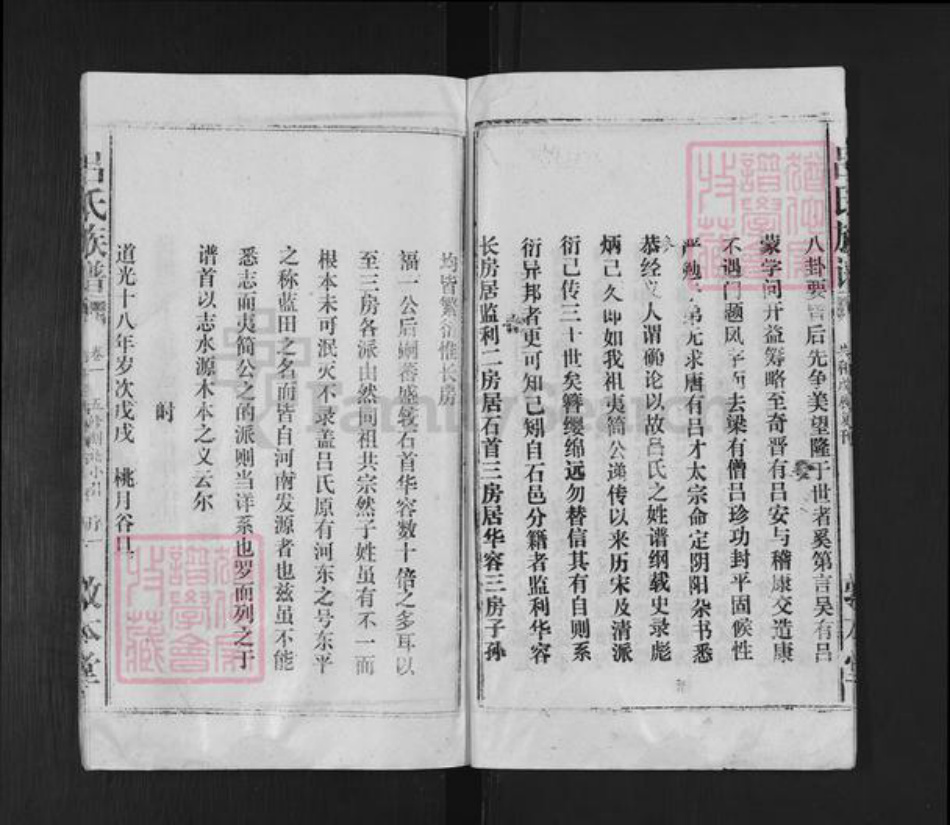 八卦要旨后先争美望隆于世者奚第言吴有吕
蒙学问开益筹略至奇晋有吕安与稽康交造康
不遇门题凤字而去梁有僧吕珍功封平固候性
严勉 弟尤求唐有吕才太宗命定阴阳杂书悉
恭经 人谓确论以故吕氏之姓谱纲载史录彪
炳已久即如我祖夷简公递传以来历宋及清派
衍已传三十世矣簪缨绵远勿替信其有自则系
衍异邦者更可知已矧自石邑分籍者监利华容
长房居监利二房居石首三房居华容三房子孙
均皆繁衍惟长房
福一公后嗣蕃盛较石首华容数十倍之多耳以
至三房各派由然同祖共宗然子姓虽有不一而
根本未可泯灭不录盖吕氏原有河东之号东平
之称蓝田之名而皆自河南发源者也兹虽不能
悉志而夷简公之的派则当详系也罗而列之于
谱首以志水源木本之义云尔
时
道光十八年岁次戊戌 桃月谷旦
吕氏族谱
卷一
敬本堂
FamilySearch